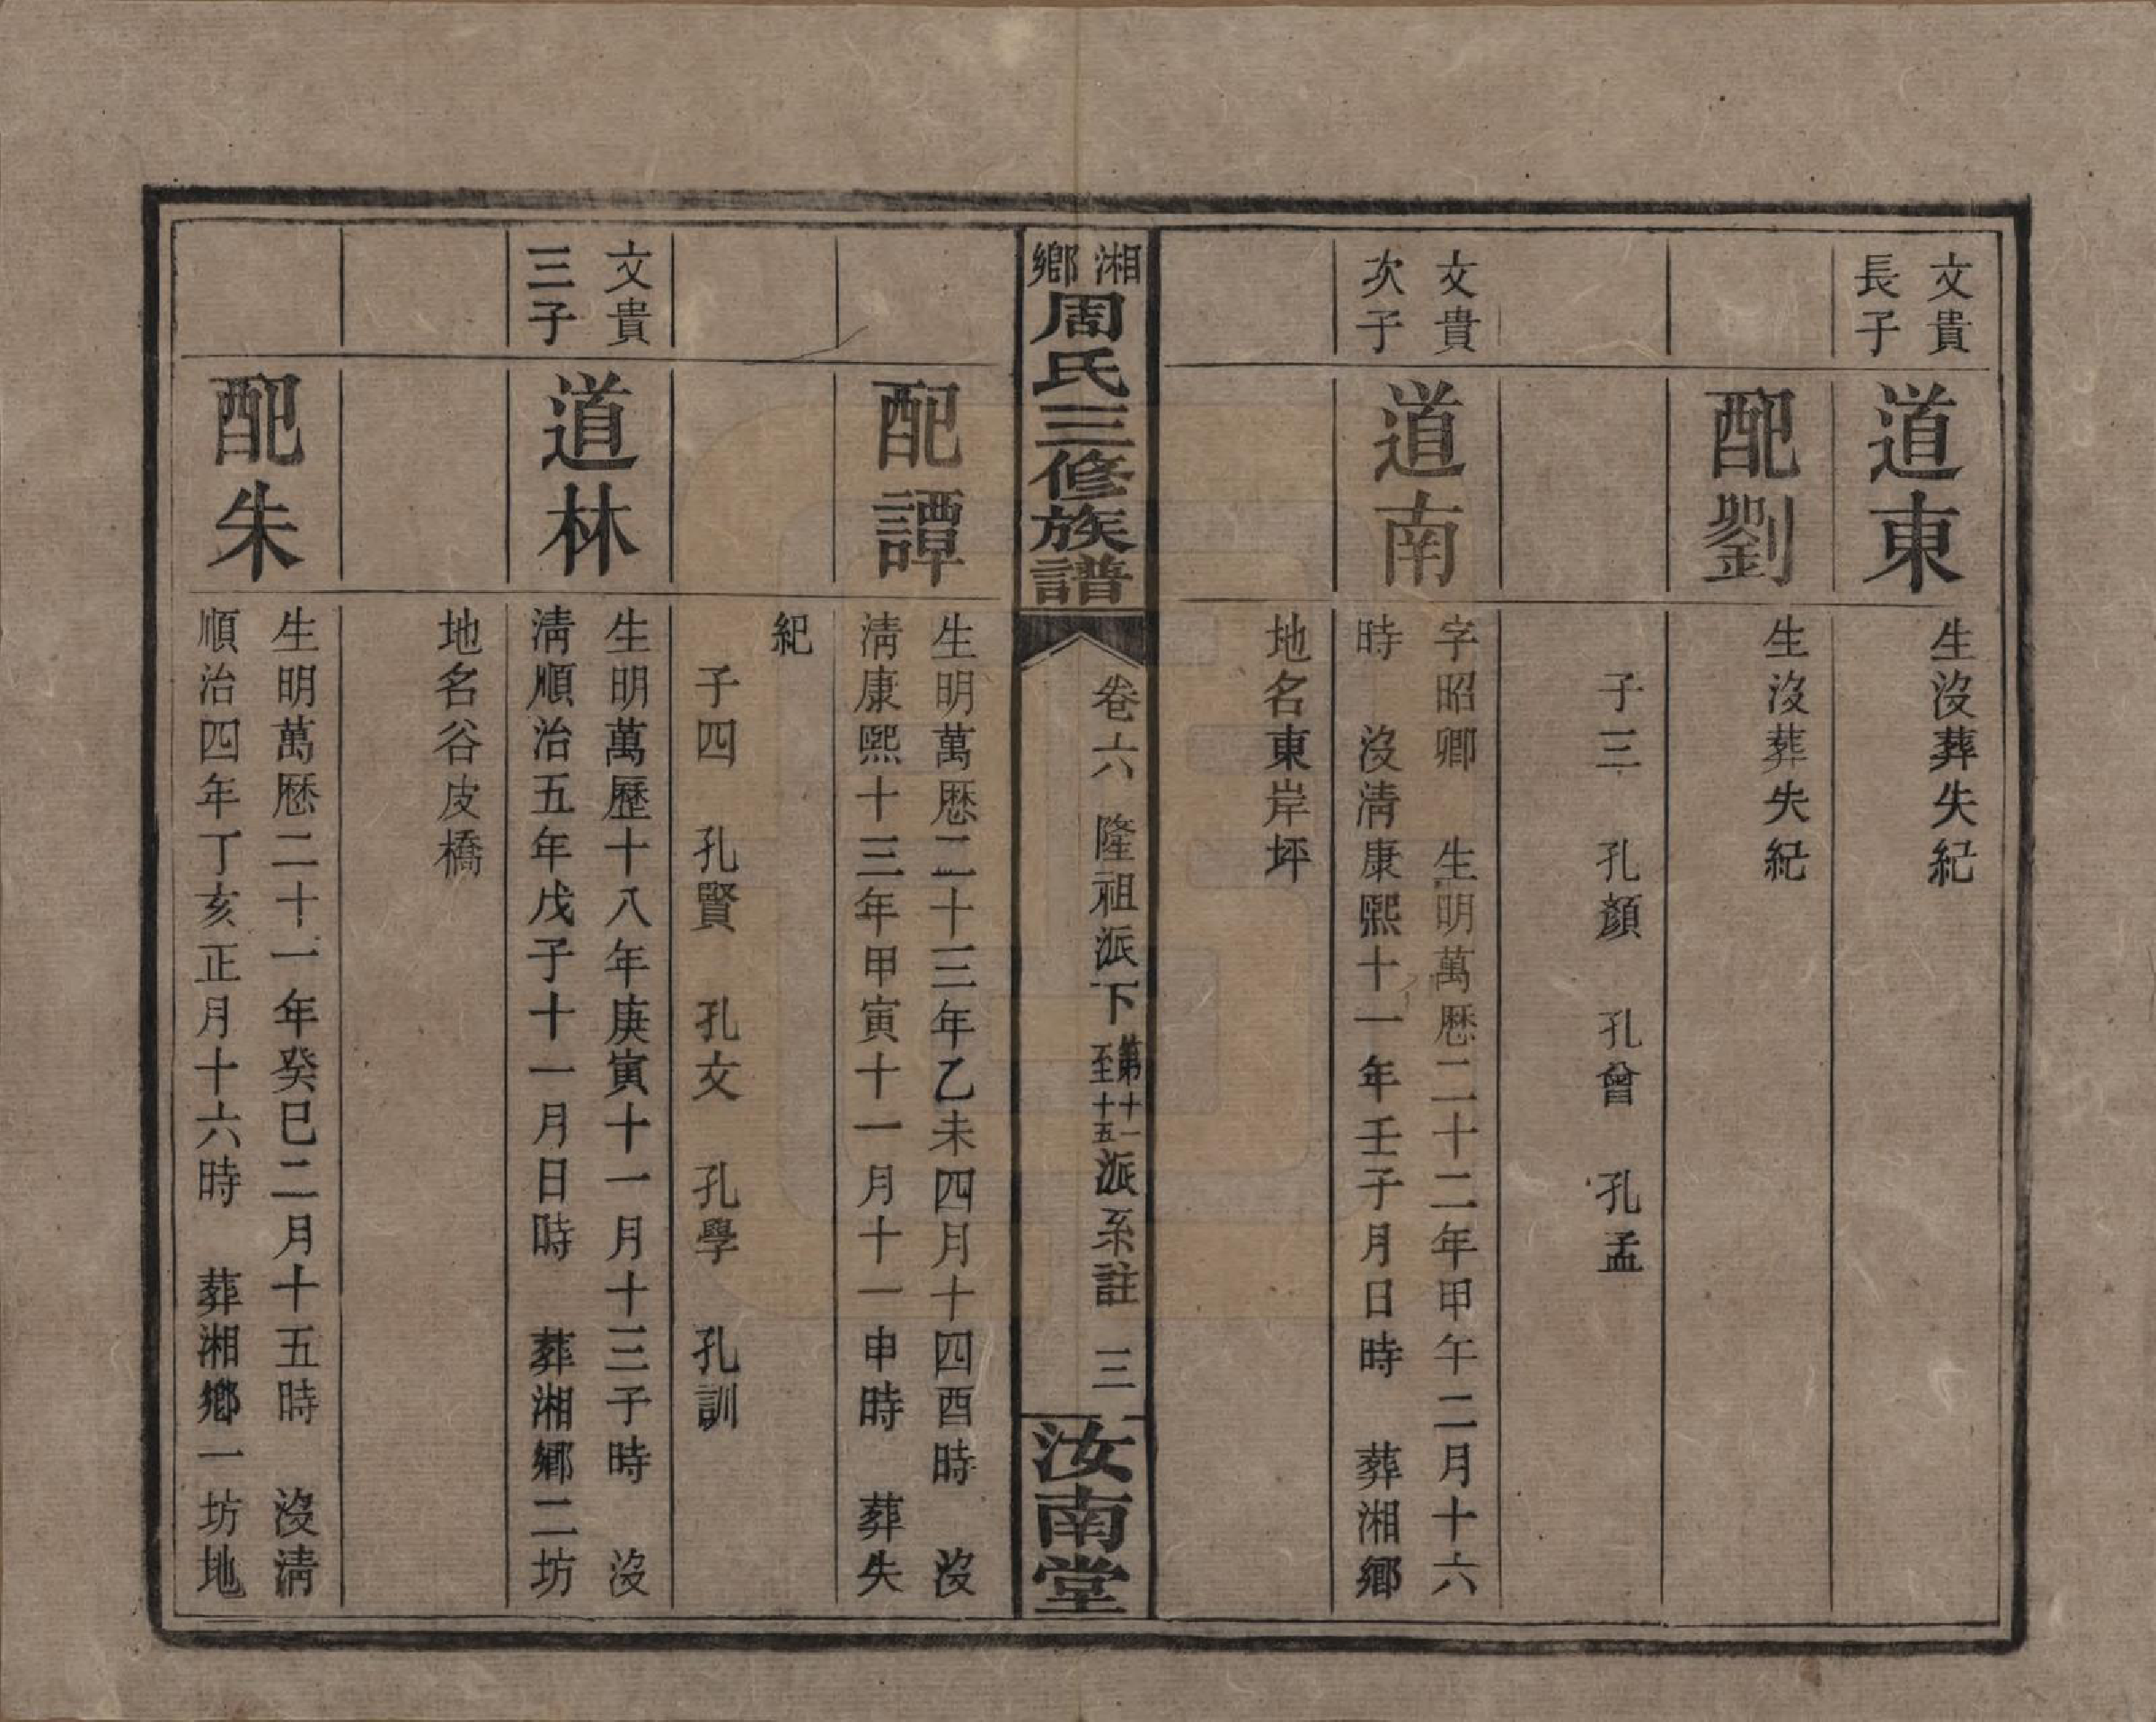 文貴
長子
道東
生沒葬失紀
配劉
生沒葬失紀
子三　孔顏　孔曾　孔孟
文貴
次子
道南
字昭卿　生明萬歷二十二年甲午二月十六
時　沒清康熙十一年壬子月日時　葬湘鄉
地名東岸坪
湘鄉周氏三修族譜
卷六　隆祖派下第十一至十五派系註　三
汝南堂
配譚
生明萬歷二十三年乙未四月十四酉時　沒
清康熙十三年甲寅十一月十一申時　葬失
紀
子四　孔賢　孔文　孔學　孔訓
文貴
三子
道林
生明萬歷十八年庚寅十一月十三子時　沒
清順治五年戊子十一月日時　葬湘鄉二坊
地名谷皮橋
配朱
生明萬歷二十一年癸巳二月十五時　沒清
順治四年丁亥正月十六時　葬湘鄉一坊地